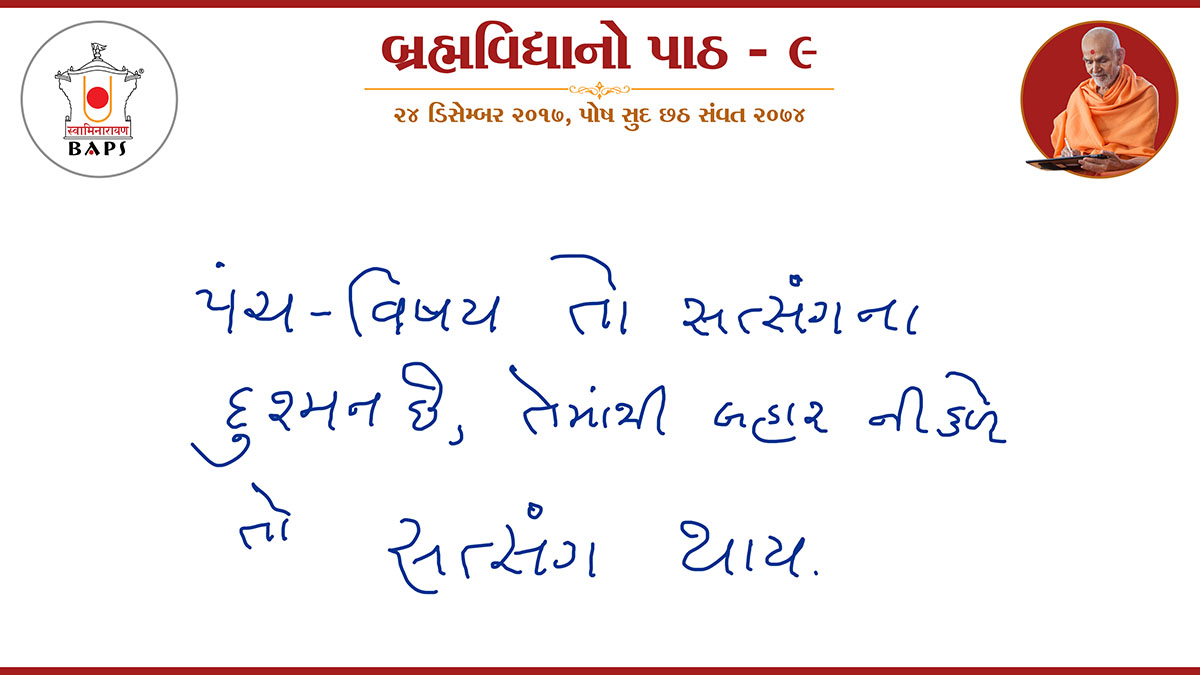 બ્રહ્મવિદ્યાનો પાઠ - ૯
૨૪ ડિસેમ્બર ૨૦૧૭, પોષ સુદ છઠ સંવત ૨૦૭૪
®
स्वामिनारायण
BAPS
પંચ-વિષય તો સત્સંગના
દુશ્મન છે, તેમાંથી બહાર નીકળે
તો સત્સંગ થાય.